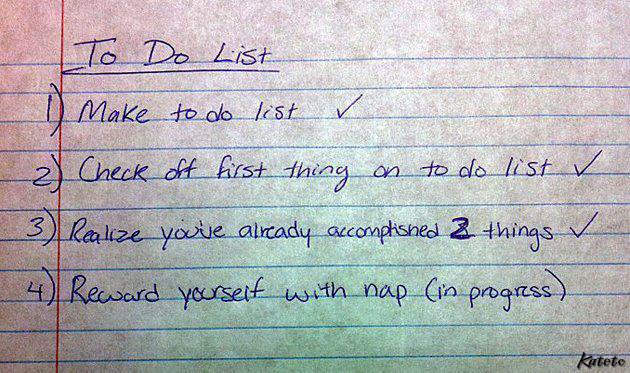 To Do List
1) Make to do list ✓
2) Check off first thing on to do list ✓
3) Realize you've already accomplished 2 things ✓
4) Reward yourself with nap (in progress)
Kateto